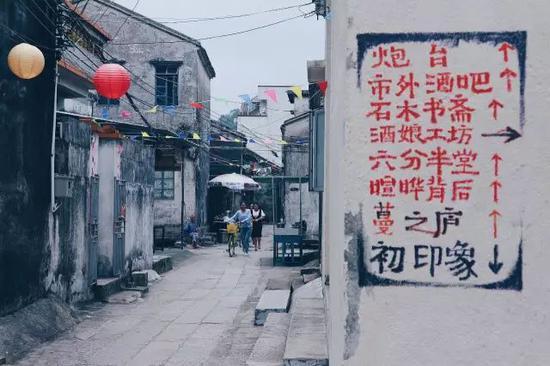 炮台 ↑
市外酒吧 ↑
石木书斋 ↑
酒娘工坊 →
六分半堂 ↑
暄晔背后 ↑
蔓之庐 ↑
初印象 ↓